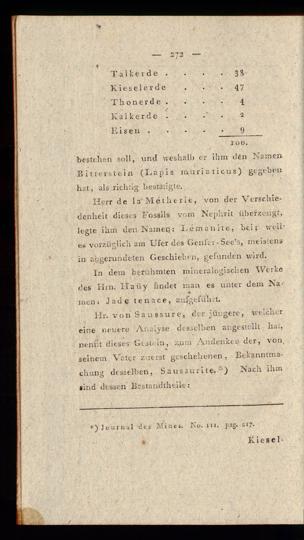 — 272 —
Talkerde . . . . 38
Kieselerde . . . . 47
Thonerde . . . . 4
Kalkerde . . . . 2
Eisen . . . . . 9
100.
bestehen soll, und weshalb er ihm den Namen
Bitterstein (Lapis muriaticus) gegeben
hat, als richtig bestätigte.
Herr de la Métherie, von der Verschie-
denheit dieses Fossils vom Nephrit überzeugt,
legte ihm den Namen: Lémanite, bei: weil
es vorzüglich am Ufer des Genfer-See's, meistens
in abgerundeten Geschieben, gefunden wird.
In dem berühmten mineralogischen Werke
des Hrn. Haüy findet man es unter dem Na-
men: Jade tenace, aufgeführt.
Hr. von Saussure, der jüngere, welcher
eine neuere Analyse desselben angestellt hat,
nennt dieses Gestein, zum Andenken der, von
seinem Vater zuerst geschehenen, Bekanntma-
chung desselben, Saussurite.*) Nach ihm
sind dessen Bestandtheile:
*) Journal des Mines. No. 111. pag. 217.
Kiesel-